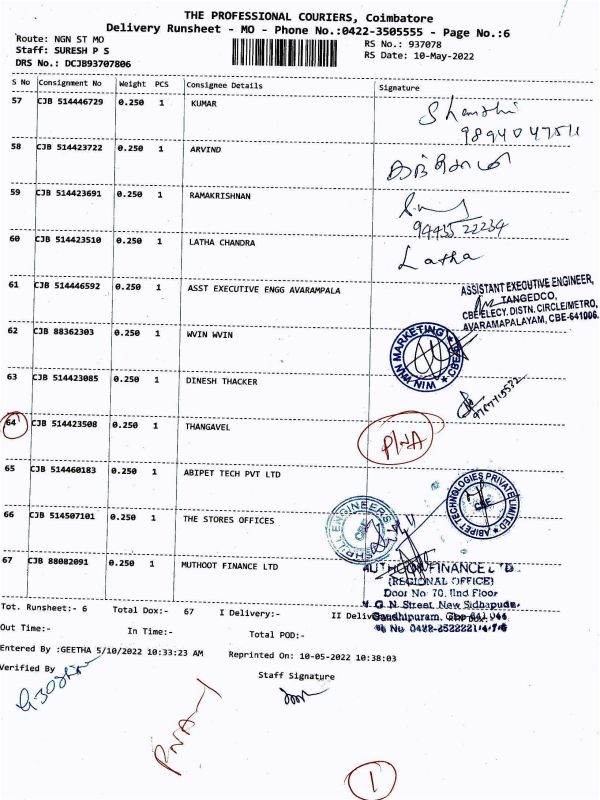 THE PROFESSIONAL COURIERS, Coimbatore
Delivery Runsheet - MO - Phone No.:0422-3505555 - Page No.:6
Route: NGN ST MO
Staff: SURESH P S
DRS No.: DCJB93707806
RS No.: 937078
RS Date: 10-May-2022
S No Consignment No Weight PCS Consignee Details Signature
57 CJB 514446729 0.250 1 KUMAR
58 CJB 514423722 0.250 1 ARVIND
59 CJB 514423691 0.250 1 RAMAKRISHNAN
60 CJB 514423510 0.250 1 LATHA CHANDRA Latha
61 CJB 514446592 0.250 1 ASST EXECUTIVE ENGG AVARAMPALA
ASSISTANT EXECUTIVE ENGINEER,
TANGEDCO,
CBE ELECY. DISTN. CIRCLE/METRO,
AVARAMAPALAYAM, CBE-641006.
62 CJB 88362303 0.250 1 WVIN WVIN
WIN WIN MARKETING CBE
63 CJB 514423085 0.250 1 DINESH THACKER
64 CJB 514423508 0.250 1 THANGAVEL P/NA
65 CJB 514460183 0.250 1 ABIPET TECH PVT LTD
ABIPET TECHNOLOGIES PRIVATE LIMITED
CBE
66 CJB 514507101 0.250 1 THE STORES OFFICES
ENGINEERS
CBE
67 CJB 88082091 0.250 1 MUTHOOT FINANCE LTD
MUTHOOT FINANCE LTD
(REGIONAL OFFICE)
Door No 70, IInd Floor
V G N Street, New Sidhapudur
Gandhipuram,
Tot. Runsheet:- 6 Total Dox:- 67 I Delivery:- II Delivery:-
Out Time:- In Time:- Total POD:-
Entered By :GEETHA 5/10/2022 10:33:23 AM Reprinted On: 10-05-2022 10:38:03
Verified By
Staff Signature
PNA-1
1